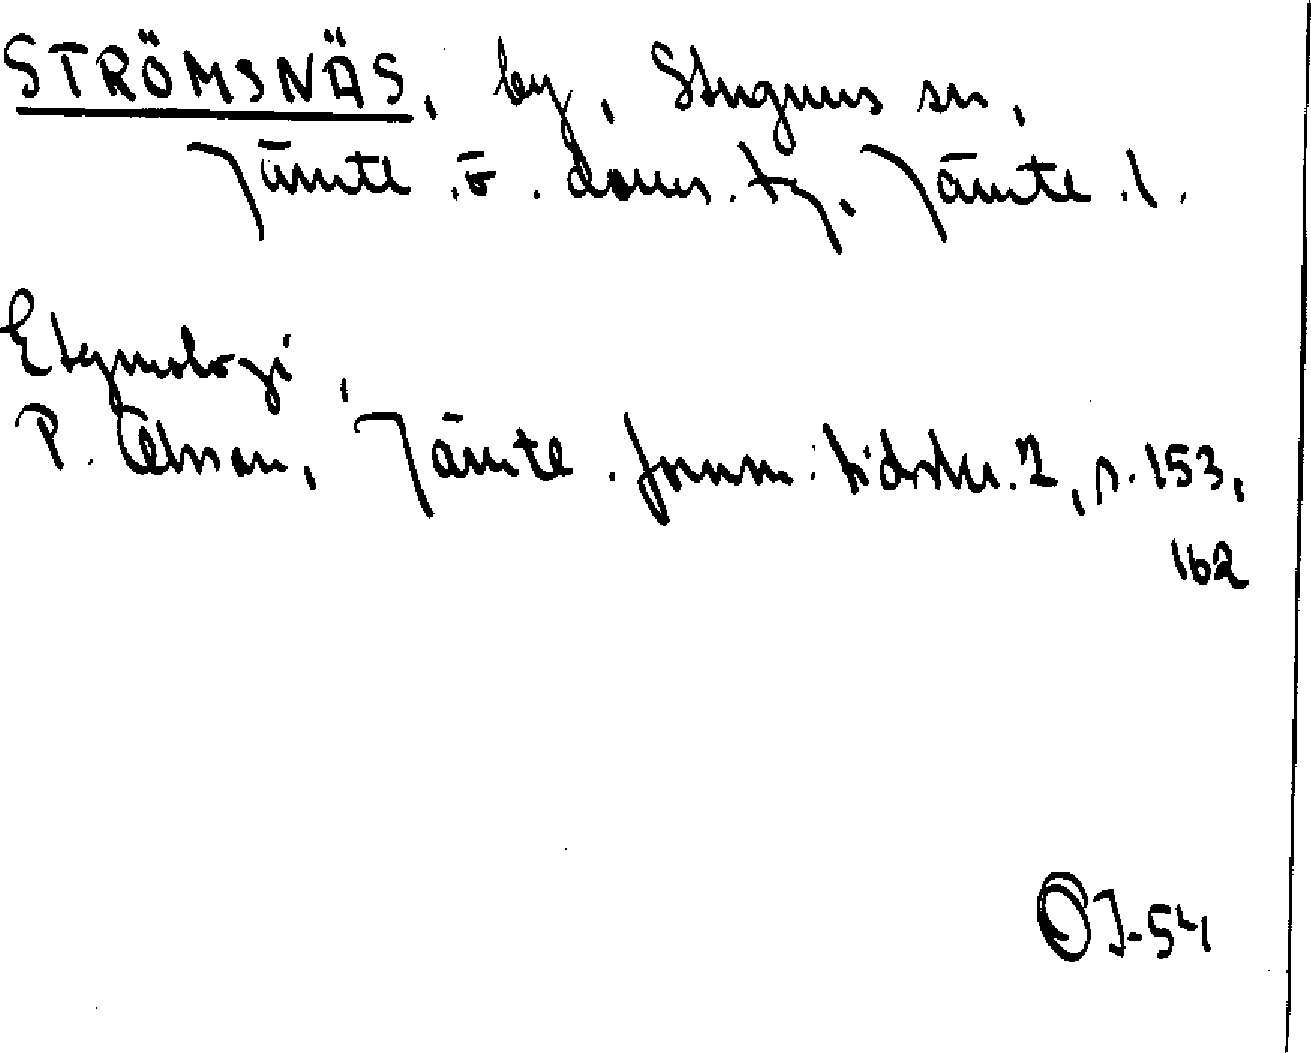 STRÖMSNÄS, by, Stuguns sn,
Jämtl. ö. doms. tg, Jämtl. l.
Etymologi,
P. Olsson, Jämtl. fornm. tidskr. 2, s. 153,
162
OJ-54